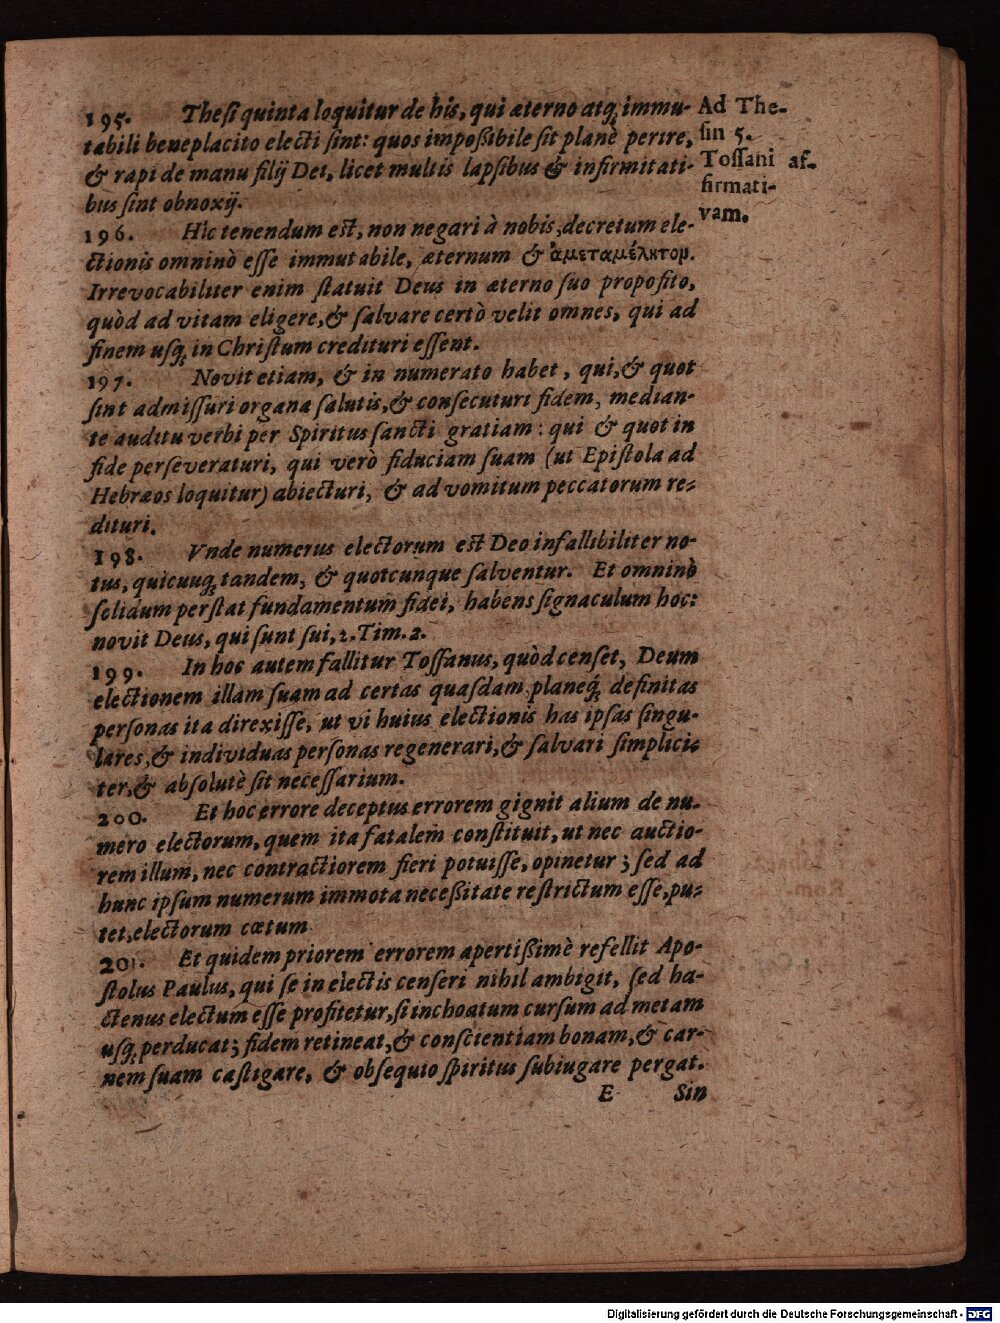 195. Thesi quinta loquitur de his, qui æterno atq; immu-
tabili beneplacito electi sint: quos impoßibile sit planè perire,
& rapi de manu filij Dei, licet multis lapsibus & infirmitati-
bus sint obnoxij.
Ad The-
sin 5.
Tossani af-
firmati-
vam.
196. Hic tenendum est, non negari à nobis, decretum ele-
ctionis omninò esse immutabile, æternum & ἀμεταμέλητον.
Irrevocabiliter enim statuit Deus in æterno suo proposito,
quòd ad vitam eligere, & salvare certò velit omnes, qui ad
finem usq; in Christum credituri essent.
197. Novit etiam, & in numerato habet, qui, & quot
sint admissuri organa salutis, & consecuturi fidem, median-
te auditu verbi per Spiritus sancti gratiam: qui & quot in
fide perseveraturi, qui verò fiduciam suam (ut Epistola ad
Hebræos loquitur) abiecturi, & ad vomitum peccatorum re-
dituri.
198. Vnde numerus electorum est Deo infallibiliter no-
tus, quicunq; tandem, & quotcunque salventur. Et omninò
solidum perstat fundamentum fidei, habens signaculum hoc:
novit Deus, qui sunt sui, 2. Tim. 2.
199. In hoc autem fallitur Tossanus, quòd censet, Deum
electionem illam suam ad certas quasdam planeq́; definitas
personas ita direxisse, ut vi huius electionis has ipsas singu-
lares, & individuas personas regenerari, & salvari simplici-
ter, & absolutè sit necessarium.
200. Et hoc errore deceptus errorem gignit alium de nu-
mero electorum, quem ita fatalem constituit, ut nec auctio-
rem illum, nec contractiorem fieri potuisse, opinetur; sed ad
hunc ipsum numerum immota neceßitate restrictum esse, pu-
tet, electorum cœtum
201. Et quidem priorem errorem apertißimè refellit Apo-
stolus Paulus, qui se in electis censeri nihil ambigit, sed ha-
ctenus electum esse profitetur, si inchoatum cursum ad metam
usq; perducat; fidem retineat, & conscientiam bonam, & car-
nem suam castigare, & obsequio spiritus subiugare pergat.
E Sin
Digitalisierung gefördert durch die Deutsche Forschungsgemeinschaft - DFG